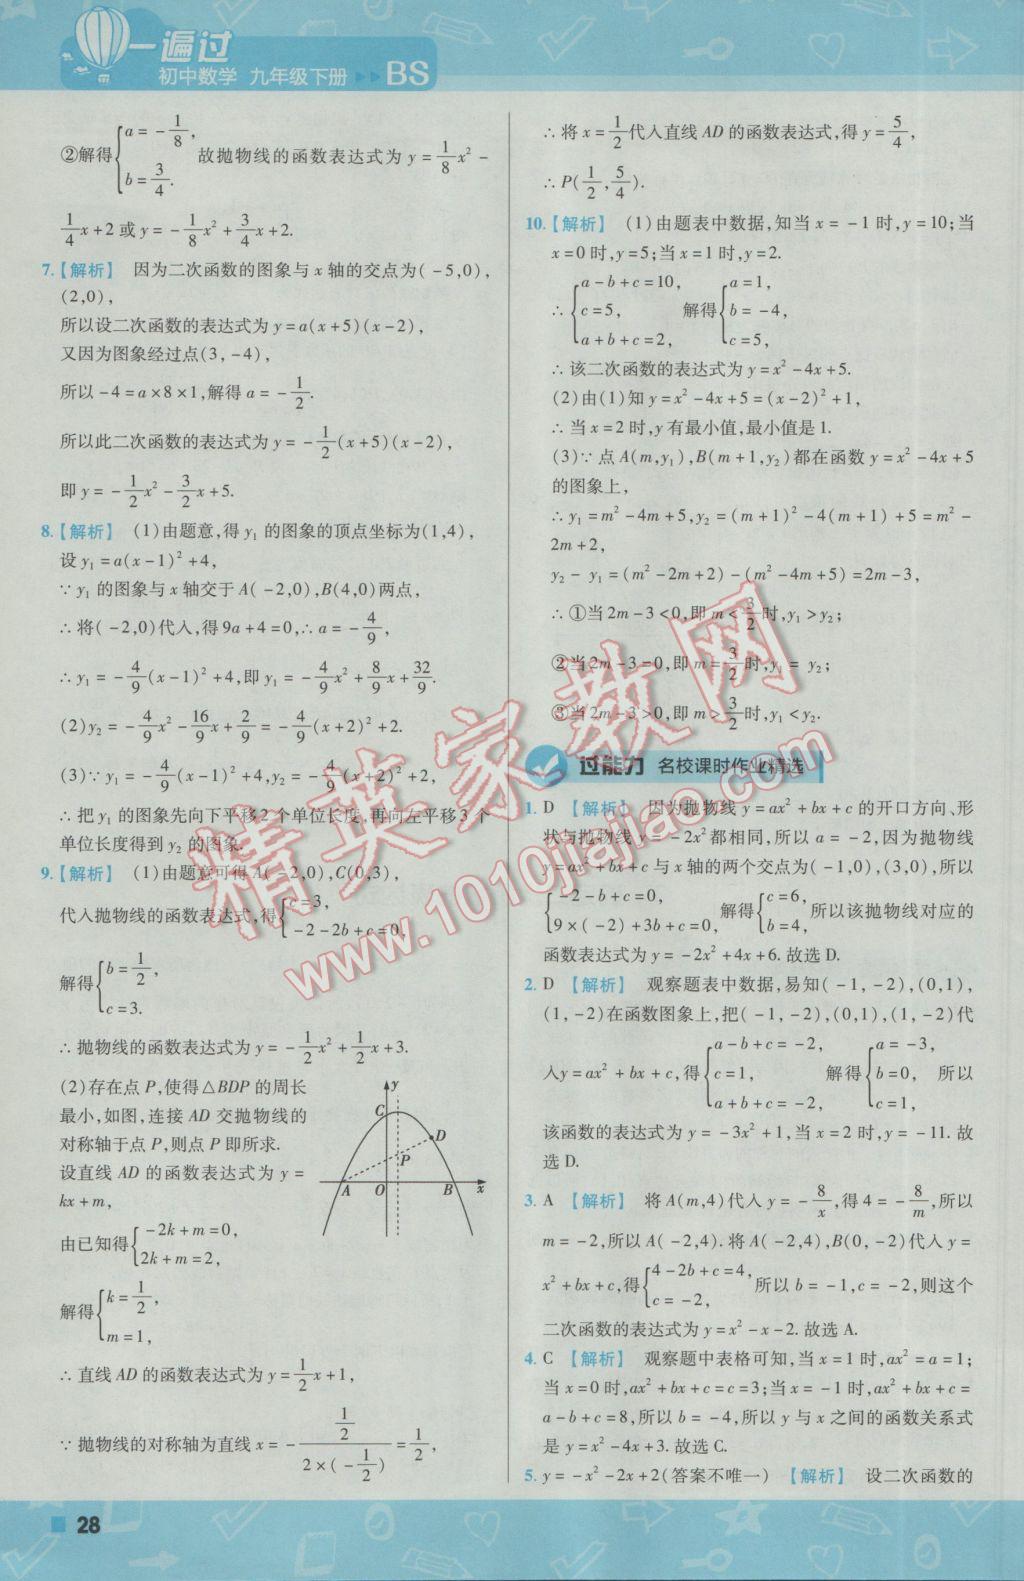 一遍过
初中数学 九年级下册 ▶▶ BS
②解得{a=-1/8, b=3/4. 故抛物线的函数表达式为 y=1/8x²-
1/4x+2 或 y=-1/8x²+3/4x+2.
7.【解析】 因为二次函数的图象与 x 轴的交点为(-5,0),
(2,0),
所以设二次函数的表达式为 y=a(x+5)(x-2),
又因为图象经过点(3,-4),
所以-4=a×8×1,解得 a=-1/2.
所以此二次函数的表达式为 y=-1/2(x+5)(x-2),
即 y=-1/2x²-3/2x+5.
8.【解析】 (1)由题意,得 y₁ 的图象的顶点坐标为(1,4),
设 y₁=a(x-1)²+4,
∵ y₁ 的图象与 x 轴交于 A(-2,0)、B(4,0)两点,
∴ 将(-2,0)代入,得 9a+4=0,∴ a=-4/9,
∴ y₁=-4/9(x-1)²+4,即 y₁=-4/9x²+8/9x+32/9.
(2)y₂=-4/9x²-16/9x+2/9=-4/9(x+2)²+2.
(3)∵ y₁=-4/9(x-1)²+4,y₂=-4/9(x+2)²+2,
∴ 把 y₁ 的图象先向下平移 2 个单位长度,再向左平移 3 个
单位长度得到 y₂ 的图象.
9.【解析】 (1)由题意可得 A(-2,0),C(0,3),
代入抛物线的函数表达式,得{c=3, -2-2b+c=0,
解得{b=1/2, c=3.
∴ 抛物线的函数表达式为 y=-1/2x²+1/2x+3.
(2)存在点 P,使得△BDP 的周长
最小,如图,连接 AD 交抛物线的
对称轴于点 P,则点 P 即所求.
设直线 AD 的函数表达式为 y=
kx+m,
由已知得{-2k+m=0, 2k+m=2,
解得{k=1/2, m=1,
y
C
D
P
A O B x
∴ 直线 AD 的函数表达式为 y=1/2x+1,
∵ 抛物线的对称轴为直线 x=-(1/2)/(2×(-1/2))=1/2,
∴ 将 x=1/2代入直线 AD 的函数表达式,得 y=5/4,
∴ P(1/2,5/4).
10.【解析】 (1)由题表中数据,知当 x=-1 时,y=10;当
x=0 时,y=5;当 x=1 时,y=2.
∴ {a-b+c=10, c=5, a+b+c=2, 解得{a=1, b=-4, c=5,
∴ 该二次函数的表达式为 y=x²-4x+5.
(2)由(1)知 y=x²-4x+5=(x-2)²+1,
∴ 当 x=2 时,y 有最小值,最小值是 1.
(3)∵ 点 A(m,y₁),B(m+1,y₂)都在函数 y=x²-4x+5
的图象上,
∴ y₁=m²-4m+5,y₂=(m+1)²-4(m+1)+5=m²-
2m+2,
y₂-y₁=(m²-2m+2)-(m²-4m+5)=2m-3,
∴ ①当 2m-3<0,即 m<3/2时,y₁>y₂;
②当 2m-3=0,即 m=3/2时,y₁=y₂;
③当 2m-3>0,即 m>3/2时,y₁<y₂.
过能力 名校课时作业精选
1. D 【解析】 因为抛物线 y=ax²+bx+c 的开口方向、形
状与抛物线 y=-2x²都相同,所以 a=-2,因为抛物线
y=ax²+bx+c 与 x 轴的两个交点为(-1,0),(3,0),所以
{-2-b+c=0, 9×(-2)+3b+c=0, 解得{c=6, b=4, 所以该抛物线对应的
函数表达式为 y=-2x²+4x+6.故选 D.
2. D 【解析】 观察题表中数据,易知(-1,-2),(0,1),
(1,-2)在函数图象上,把(-1,-2),(0,1),(1,-2)代
入y=ax²+bx+c,得{a-b+c=-2, c=1, a+b+c=-2, 解得{a=-3, b=0, c=1, 所以
该函数的表达式为 y=-3x²+1,当 x=2 时,y=-11.故
选 D.
3. A 【解析】 将 A(m,4)代入 y=-8/x,得 4=-8/m,所以
m=-2,所以 A(-2,4).将 A(-2,4),B(0,-2)代入 y=
x²+bx+c,得{4-2b+c=4, c=-2, 所以 b=-1,c=-2,则这个
二次函数的表达式为 y=x²-x-2.故选 A.
4. C 【解析】 观察题中表格可知,当 x=1 时,ax²=a=1;
当 x=0 时,ax²+bx+c=c=3;当 x=-1 时,ax²+bx+c=
a-b+c=8,所以 b=-4,所以 y 与 x 之间的函数关系式
是 y=x²-4x+3.故选 C.
5. y=-x²-2x+2(答案不唯一) 【解析】 设二次函数的
28
精英家教网
www.1010jiajiao.com